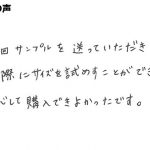 の声
回サンプルを送っていただき
際にサイズを試めすことができ
心して購入できよかったです。